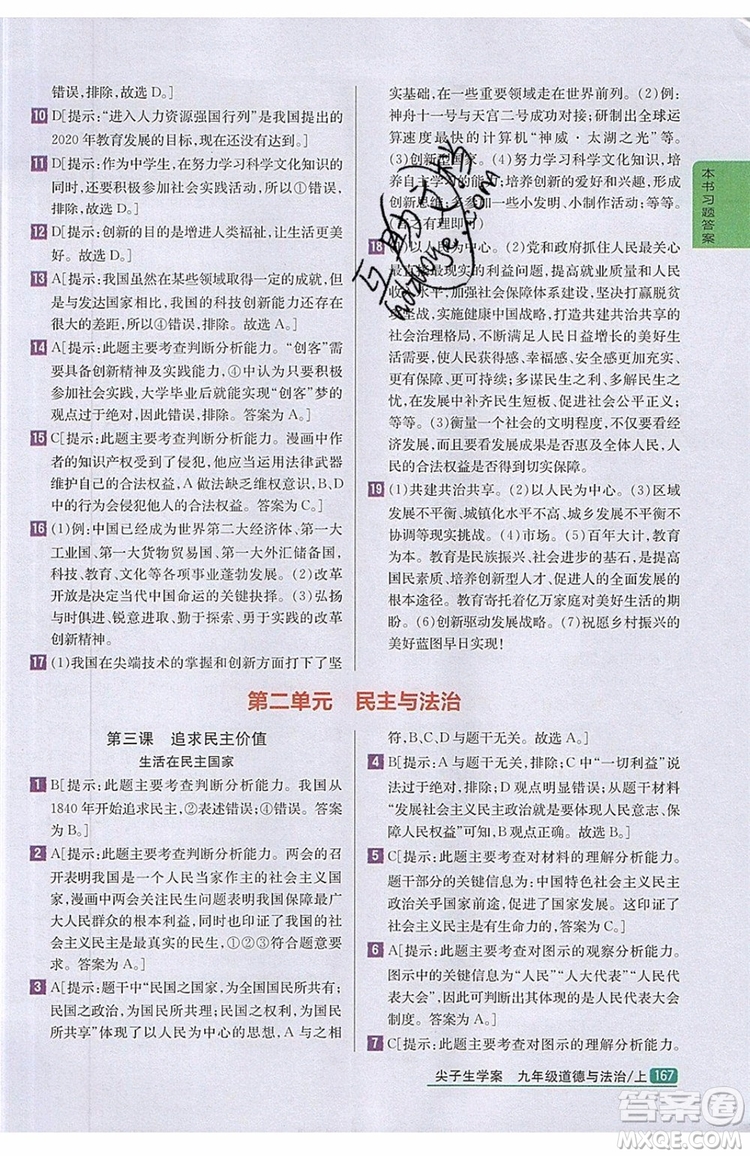 错误，排除，故选 D。]
10 D[提示：“进入人力资源强国行列”是我国提出的
2020 年教育发展的目标，现在没有实现。]
11 D[提示：作为中学生，在努力学习科学文化知识的
同时，还要积极参加社会实践活动，所以①④错误，
排除，故选 D。]
12 D[提示：创新的目的是增进人类福祉，让生活更
美好。]
13 A[提示：我国虽然在某些领域取得一定的成就，但
是与发达国家相比，我国的科技创新能力还存在很
大的差距，所以④错误，排除。故选 A。]
14 A[提示：此题主要考查判断分析能力。“创客”需
要具备创新精神及实践能力。④中认为只要具备
创新精神及实践能力，大学毕业后就能实现“创客”梦的
观点过于绝对，因此错误，排除。答案为 A。]
15 C[提示：此题主要考查判断分析能力。漫画中作
者的知识产权受到了侵犯，他应该运用法律武器
维护自己的合法权益，A 做法缺乏维权意识，B、D
做法会侵犯他人的合法权益。答案为 C。]
16 (1)例：中国已经成为世界第二大经济体、第一大
工业国、第一大货物贸易国、第一大外汇储备国，
科技、教育、文化等各项事业蓬勃发展。(2)改革
开放是决定当代中国命运的关键抉择。(3)弘扬
与时俱进、锐意进取、勤于探索、勇于实践的改革
创新精神。
17 (1)我国在尖端技术的掌握和创新方面打下了坚
实基础，在一些重要领域走在世界前列。(2)例：
神舟十一号与天宫二号成功对接；研制出全球运
算速度最快的计算机“神威·太湖之光”；等等。
(3)创新型国家。(4)努力学习科学文化知识，积
极参加社会实践，培养创新的爱好和兴趣，开发
创新思维；多参加一些小发明、小制作活动；等等。
18 (1)以人民为中心。(2)党和政府抓住人民最关
水平，加强社会保障体系建设，坚决打赢脱贫
坚战，实施健康中国战略，打造共建共治共享的
社会治理格局，不断满足人民日益增长的美好生
活需要，使人民获得感、幸福感、安全感更加充实、
更有保障、更可持续；多谋民生之利、多解民生之
忧，在发展中补齐民生短板、促进社会公平正义；
等等。(3)衡量一个社会的文明程度，不仅要看经
济发展，而且要看发展成果是否惠及全体人民，人
民的合法权益是否得到切实保障。
19 (1)共建共治共享。(2)以人民为中心。(3)区域
发展不平衡、城镇化水平不高、城乡发展不平衡不
协调等现实挑战。(4)市场。(5)百年大计，教育
为本。教育是民族振兴、社会进步的基石，是提高
国民素质、培养创新型人才、促进人的全面发展的
根本途径。教育寄托着亿万家庭对美好生活的期
盼。(6)敬畏自然，保护自然。(7)祝愿乡村振兴的
美好蓝图早日实现！
第二单元 民主与法治
第三课 追求民主价值
生活在民主国家
1 B[提示：此题主要考查判断分析能力。我国从
1840 年开始追求民主，②表述错误；④错误。答案
为 B。]
2 A[提示：此题主要考查判断分析能力。两会的召
开表明我国是一个人民当家作主的社会主义国
家，漫画中两会关注的民生问题表明我国保障最广
大人民群众的根本利益，同时，也印证了我国的社
会主义民主是最真实的民主，①②④符合题意要
求。答案为 A。]
3 A[提示：题干中“民国之国家，为全国国民所共有；
民国之政治，为国民所共理；民国之权利，为国民
所共享”体现了以人民为中心的思想，A 与之相
符，B、C、D 与题干无关。故选 A。]
4 B[提示：此题主要考查分析能力。A 中“一切利益”说
法过于绝对，排除；D 观点明显错误，排除；C 与
题干无关，排除。由“发展社会主义民主政治就是要体现人民意志、
保障人民权益”可知，B 观点正确。答案为 B。]
5 C[提示：此题主要考查对材料的理解分析能力。
题干部分的关键信息是优秀提案，体现社会主义民主
政治关乎国家前途、民族命运、人民幸福，印证了我
国社会主义民主是有生命力的。答案为 C。]
6 A[提示：此题主要考查对图示的观察分析能力。
图示中的关键信息为“人民”“人大代表”“人民代
表大会”，据此判断得出其体现的是人民代表大会
制度。答案为 A。]
7 C[提示：此题主要考查对图示的理解分析能力。
本书习题答案
互助文档
hdzwnye.com
尖子生学案 九年级道德与法治/上 167
答案圈
MXQE.COM